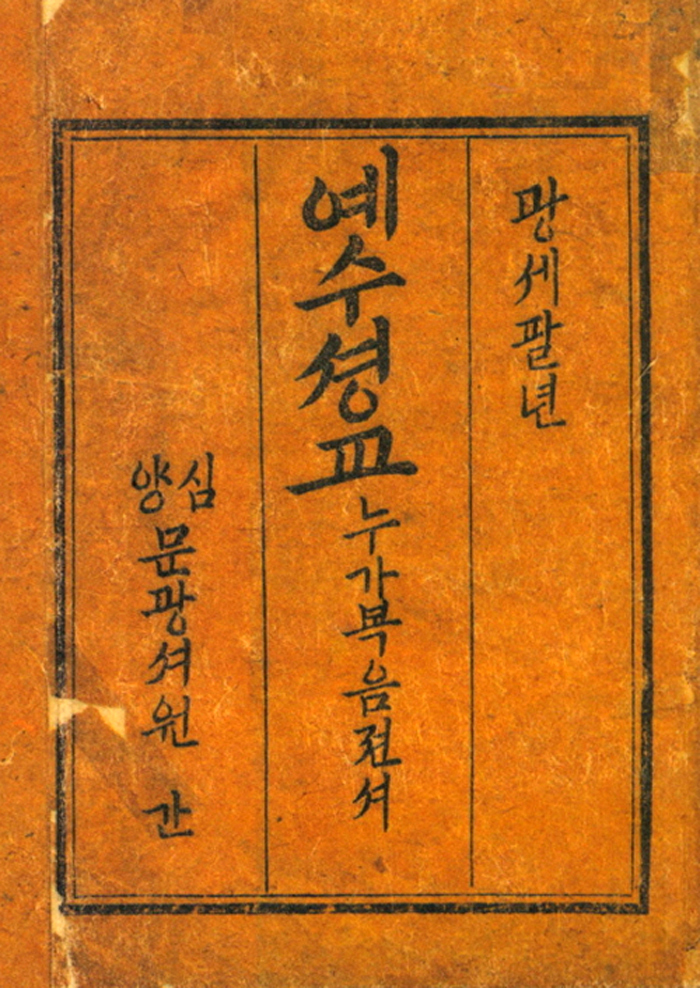 광셰팔년
예수셩교누가복음젼셔
심양문광셔원 간